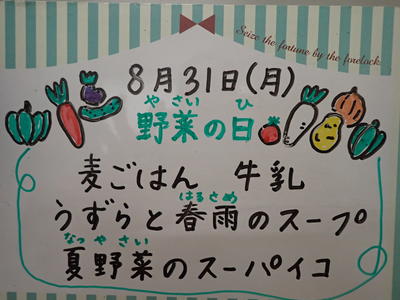 Seize the fortune by the forelock.
8月31日(月)
やさい ひ
野菜の日
麦ごはん 牛乳
はるさめ
うずらと春雨のスープ
なつ やさい
夏野菜のスーパイコ